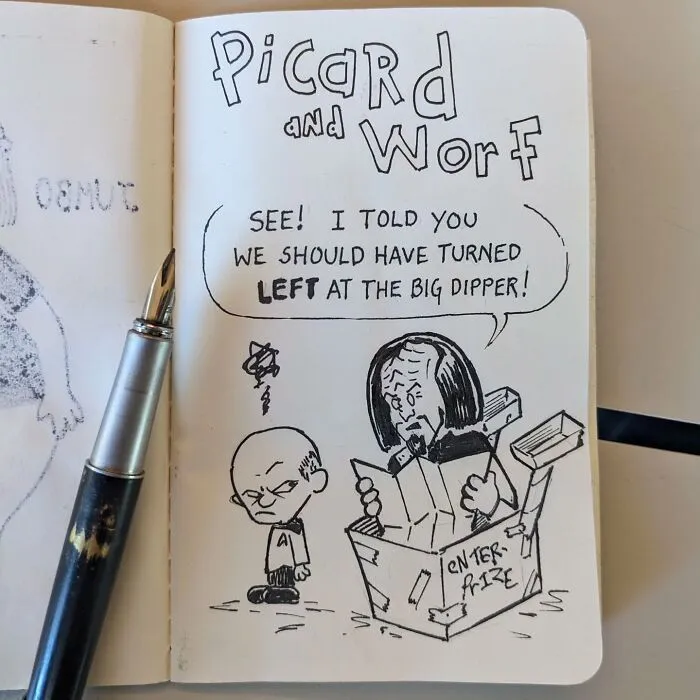 Picard
and
Worf
SEE! I TOLD YOU
WE SHOULD HAVE TURNED
LEFT AT THE BIG DIPPER!
A
ENTER-
PRIZE
JUMBO